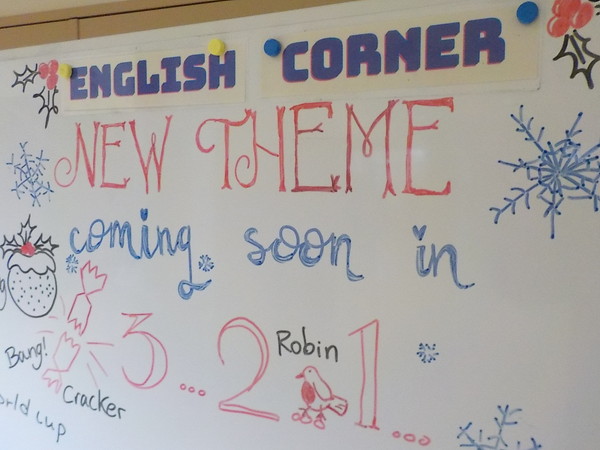 ENGLISH CORNER
NEW THEME
coming soon in
3... 2 1...
Robin
Bang!
Cracker
cup